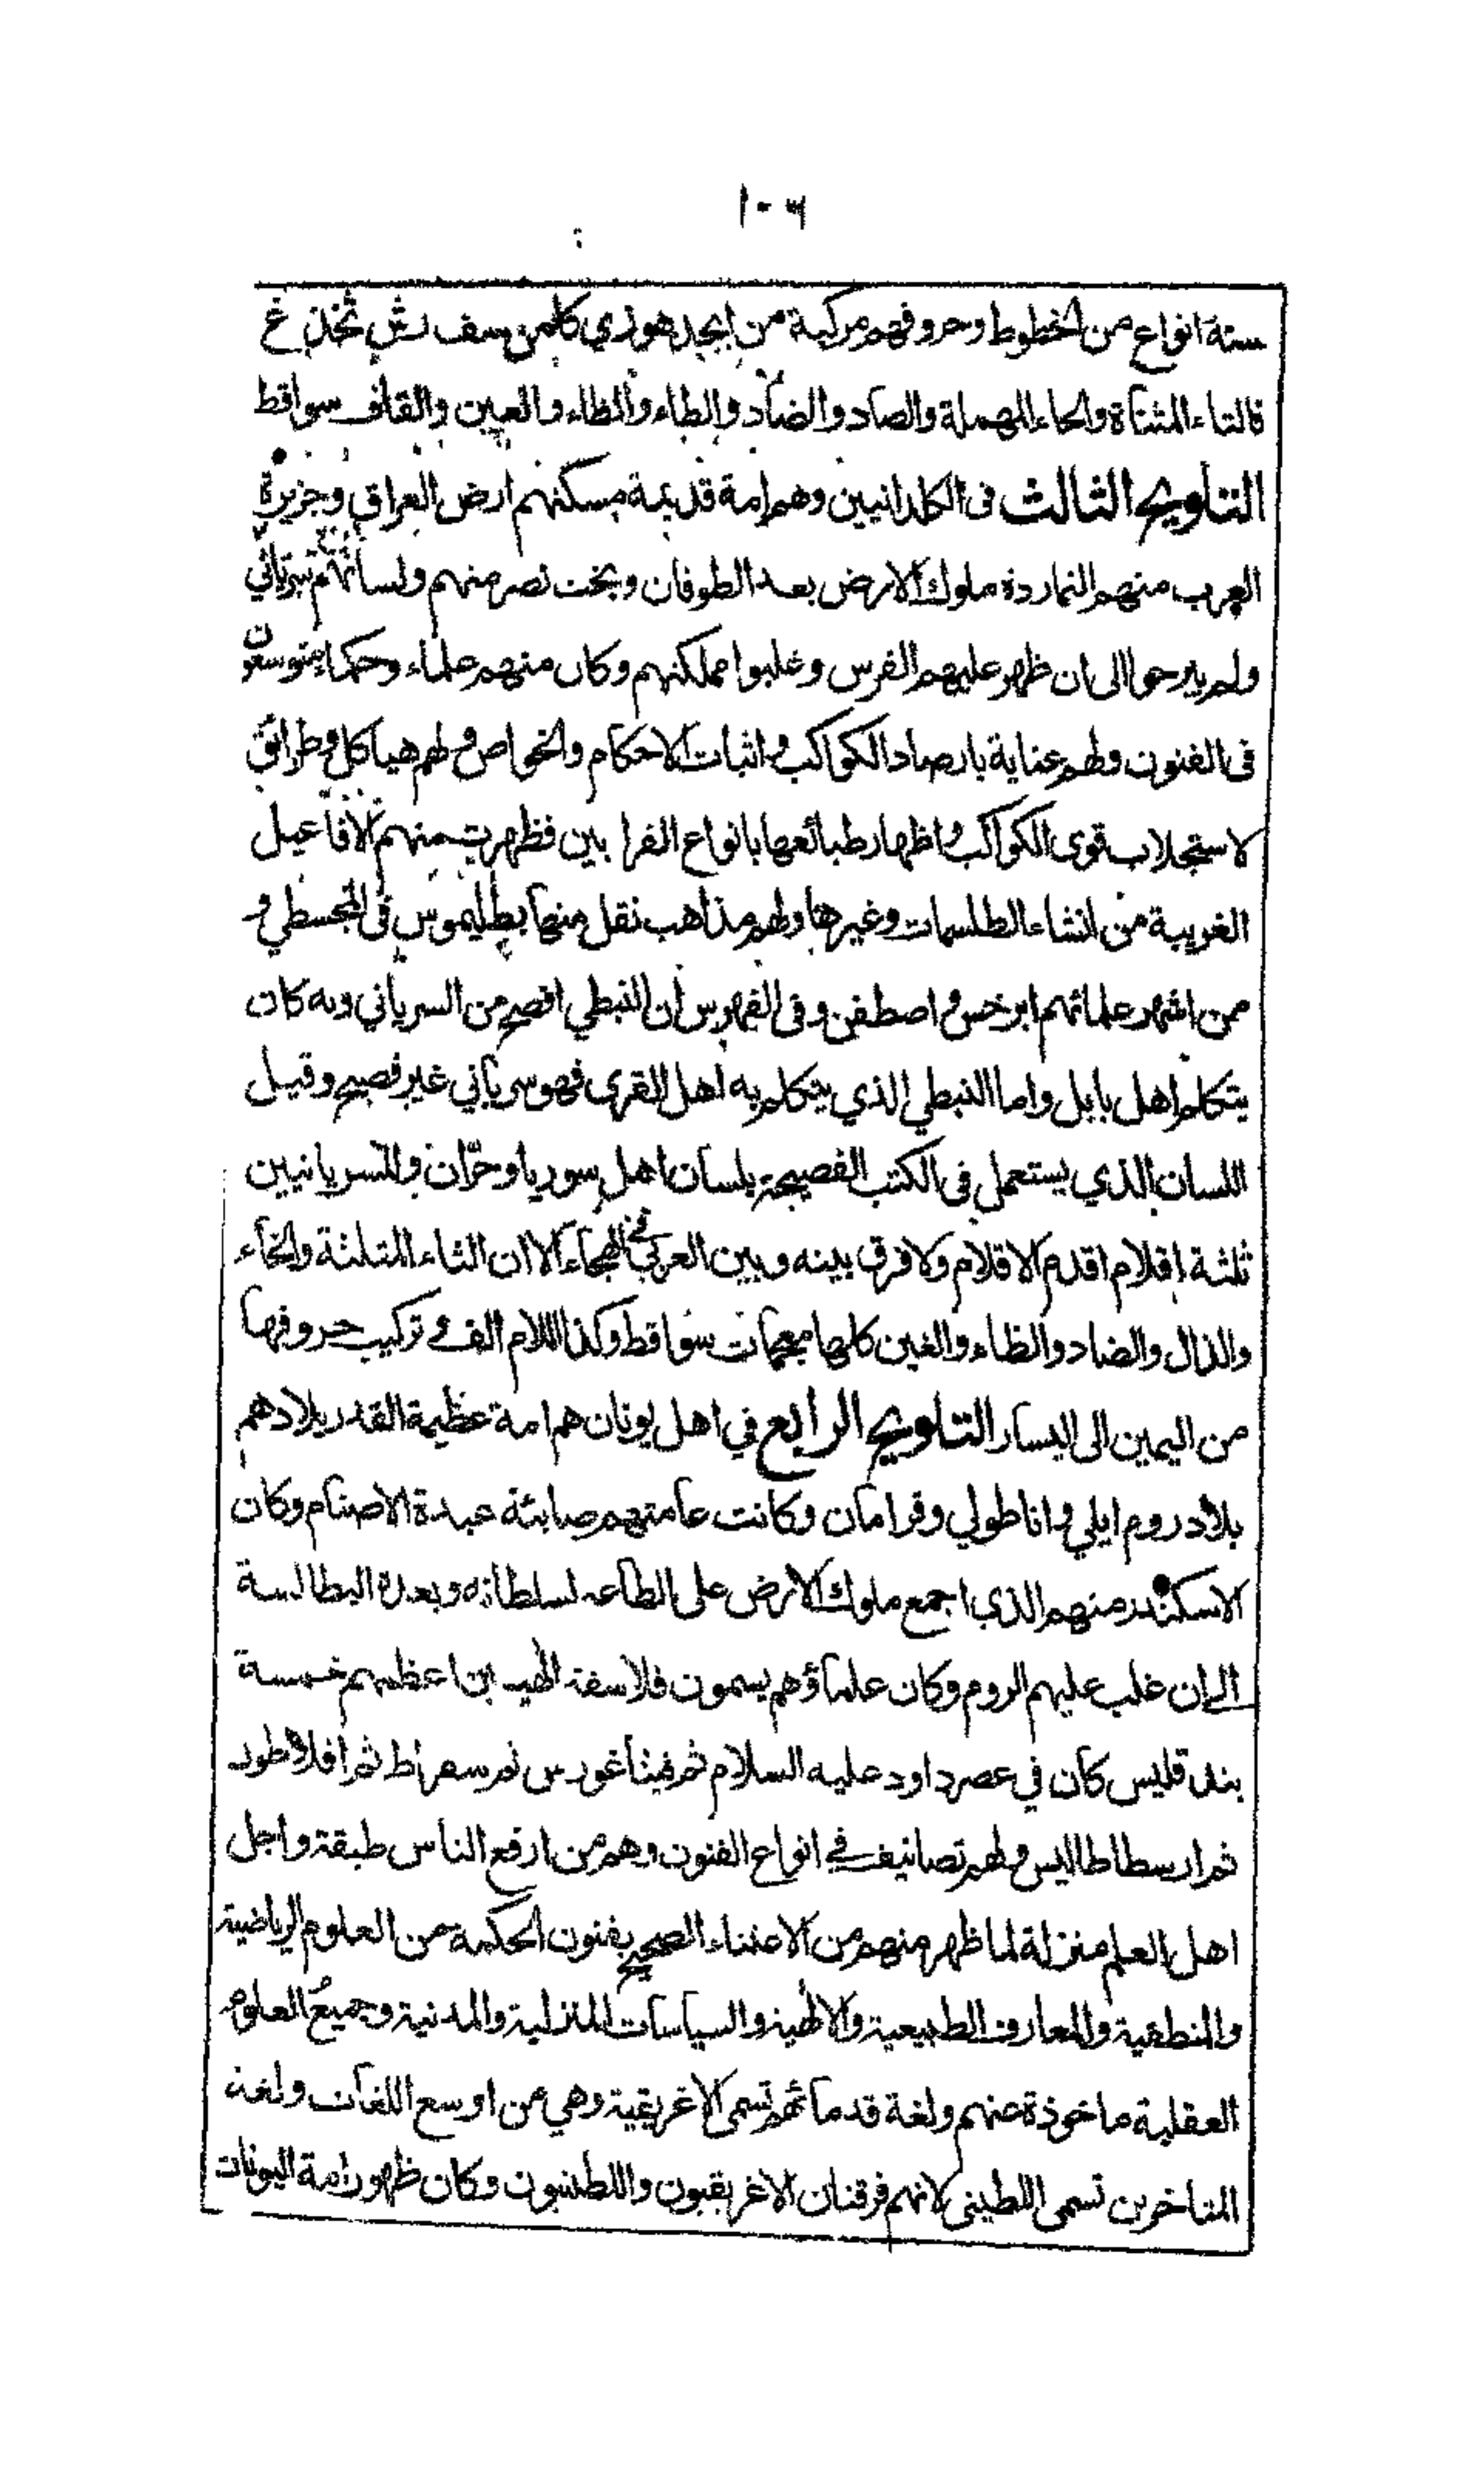 ١٠٦
ستة انواع من الخطوط وحروفهم مركبة من ابجد هوزي كلمن سف رش ثخذ غ
فالتاء المثناة والحاء المهملة والصاد والضاد والطاء والظاء والعين والقاف سواقط
التلويح الثالث فى الكلدانيين وهم امة قديمة مسكنهم ارض العراق وجزيرة
العرب منهم النماردة ملوك الارض بعد الطوفان وبخت نصر منهم ولسانهم سرياني
ولم يبرحوا الى ان ظهر عليهم الفرس وغلبوا مملكتهم وكان منهم علماء وحكماء متوسعون
فى الفنون ولهم عناية بارصاد الكواكب واثبات الاحكام والخواص ولهم هياكل وطرائق
لاستجلاب قوى الكواكب واظهار طبائعها بانواع القرابين فظهرت منهم الافاعيل
الغريبة من انشاء الطلسمات وغيرها ولهم مذاهب نقل منها بطليموس فى المجسطي و
ممن اشهر علمائهم ابرخس واصطفن وفى الفهرس ان النبطي افصح من السرياني وبه كان
يتكلم اهل بابل واما النبطي الذي يتكلم به اهل القرى فهو سرياني غير فصيح وقيل
اللسان الذي يستعمل فى الكتب الفصيحة بلسان اهل سوريا وحرّان وللسريانيين
ثلثة اقلام اقدم الاقلام ولا فرق بينه وبين العربي فى الهجاء الا ان الثاء المثلثة والخاء
والذال والضاد والظاء والغين كلها معجمات سواقط وكذا اللام الف وتركيب حروفها
من اليمين الى اليسار التلويح الرابع في اهل يونان هم امة عظيمة القدر بلادهم
بلاد روم ايلي واناطولي وقرامان وكانت عامتهم صابئة عبدة الاصنام وكان
الاسكندر منهم الذي اجمع ملوك الارض على الطاعه لسلطانه وبعده البطالسة
الى ان غلب عليهم الروم وكان علماؤهم يسمون فلاسفة الهيين اعظمهم خمسة
بندقليس كان في عصر داود عليه السلام ثم فيثاغورس ثم سقراط ثم افلاطون
ثم ارسطاطاليس ولهم تصانيف في انواع الفنون وهم من ارفع الناس طبقة واجل
اهل العلم منزلة لما ظهر منهم من الاعتناء الصحيح بفنون الحكمة من العلوم الرياضية
والمنطقية والمعارف الطبيعية والالهية والسياسات المنزلية والمدنية وجميع العلوم
العقلية ماخوذة عنهم ولغة قدمائهم تسمى الاغريقية وهي من اوسع اللغات ولغة
المتاخرين تسمى اللطينى لانهم فرقتان الاغريقيون واللطينيون وكان ظهور امة اليونان